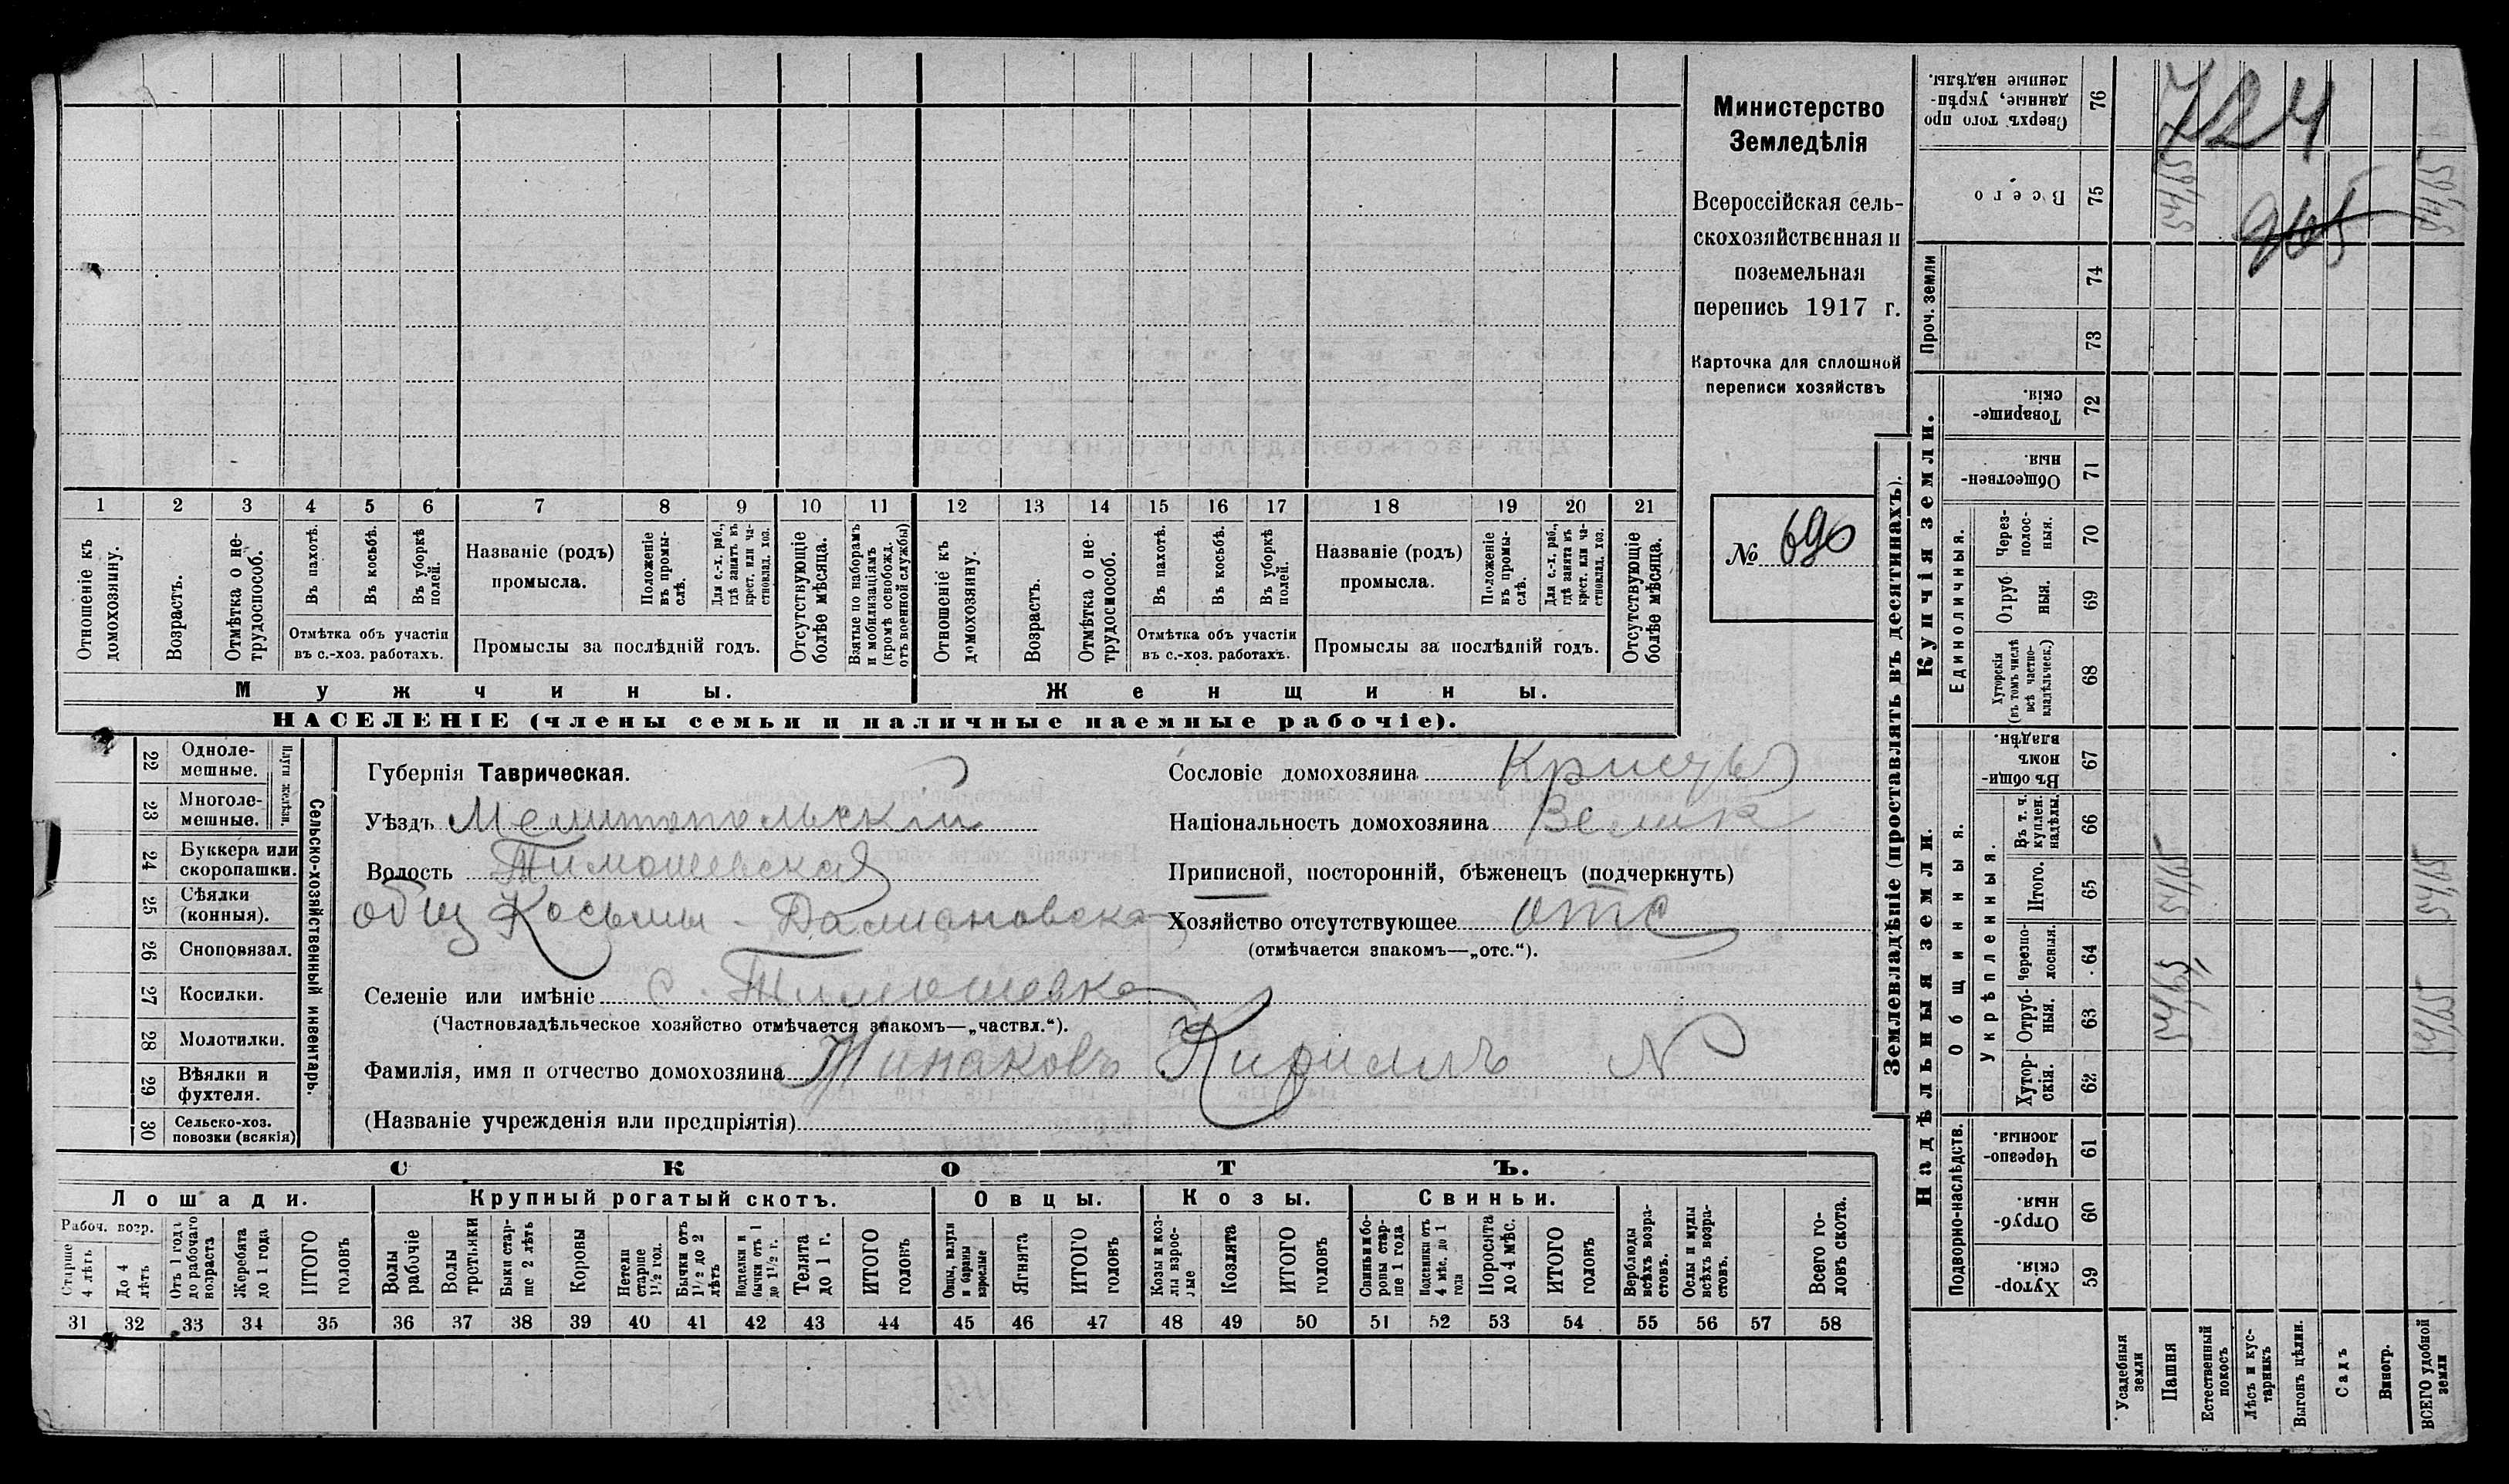 Министерство
Земледѣлія
Всероссійская сель-
скохозяйственная и
поземельная
перепись 1917 г.
Карточка для сплошной
переписи хозяйствъ
№ 690
1 2 3 4 5 6 7 8 9 10 11 12 13 14 15 16 17 18 19 20 21
Отношеніе къ домохозяину.
Возрастъ.
Отмѣтка о не-трудоспособ.
Въ пахотѣ.
Въ косьбѣ.
Въ уборкѣ полей.
Отмѣтка объ участіи
въ с.-хоз. работахъ.
Названіе (родъ)
промысла.
Положеніе въ промы-слѣ.
Для с.-х. раб., гдѣ занятъ въ крест. или ча-стновлад. хоз.
Промыслы за послѣдній годъ.
Отсутствующіе болѣе мѣсяца.
Взятые по наборамъ и мобилизаціямъ (кромѣ освобожд. отъ военной службы)
Отношеніе къ домохозяину.
Возрастъ.
Отмѣтка о не-трудоспособ.
Въ пахотѣ.
Въ косьбѣ.
Въ уборкѣ полей.
Отмѣтка объ участіи
въ с.-хоз. работахъ.
Названіе (родъ)
промысла.
Положеніе въ промы-слѣ.
Для с.-х. раб., гдѣ занята въ крест. или ча-стновлад. хоз.
Промыслы за послѣдній годъ.
Отсутствующіе болѣе мѣсяца.
Мужчины.
Женщины.
НАСЕЛЕНІЕ (члены семьи и наличные наемные рабочіе).
22 Одноле-мешные.
23 Многоле-мешные.
Плуги желѣзн.
24 Буккера или скоропашки.
25 Сѣялки (конныя).
26 Сноповязал.
27 Косилки.
28 Молотилки.
29 Вѣялки и фухтеля.
30 Сельско-хоз. повозки (всякія)
Сельско-хозяйственный инвентарь.
Губернія Таврическая.
Уѣздъ Мелитопольскій
Волость Тимошевская
общ Косьмы - Дамиановска
Селеніе или имѣніе с. Тимошевка
(Частновладѣльческое хозяйство отмѣчается знакомъ—„частвл.“).
Фамилія, имя и отчество домохозяина Жинаковъ Кириллъ N
(Названіе учрежденія или предпріятія)
Сословіе домохозяина
Національность домохозяина Велик
Приписной, посторонній, бѣженец (подчеркнуть)
Хозяйство отсутствующее отс
(отмѣчается знакомъ—„отс.“).
СКОТЪ.
Лошади.
Крупный рогатый скотъ.
Овцы.
Козы.
Свиньи.
Рабоч. возр.
Старше 4 лѣтъ
До 4 лѣтъ
Отъ 1 года до рабочаго возраста
Жеребята до 1 года
ИТОГО головъ
Волы рабочіе
Волы третьяки
Быки стар-ше 2 лѣтъ
Коровы
Нетели старше 1½ год.
Бычки отъ 1½ до 2 лѣтъ
Подтелки и бычки отъ 1 до 1½ г.
Телята до 1 г.
ИТОГО головъ
Овцы, валухи и бараны взрослые
Ягнята
ИТОГО головъ
Козы и коз-лы взрос-лые
Козлята
ИТОГО головъ
Свиньи и бо-ровы стар-ше 1 года
Подсвинки отъ 4 мѣс. до 1 года
Поросята до 4 мѣс.
ИТОГО головъ
Верблюды всѣхъ возра-стовъ.
Ослы и мулы всѣхъ возра-стовъ.
Всего го-ловъ скота.
31 32 33 34 35 36 37 38 39 40 41 42 43 44 45 46 47 48 49 50 51 52 53 54 55 56 57 58
Землевладѣніе (проставлять въ десятинахъ).
Купчія земли.
Надѣльныя земли.
Сверхъ того про-данные, укрѣп-ленные надѣлы. 76
Всего 75
Проч. земли 74
73
Товарище-скія. 72
Обществен-ныя. 71
Единоличныя.
Через-полос-ныя. 70
Отруб-ныя. 69
Хуторскія (въ томъ числѣ всѣ частно-владѣльческ.) 68
Общинныя.
Въ общи-номъ владѣн. 67
Укрѣпленныя.
Въ т. ч. куплен. надѣлы. 66
Итого. 65
Черезпо-лосныя. 64
Отруб-ныя. 63
Хутор-скія. 62
Подворно-наслѣдств.
Черезпо-лосныя. 61
Отруб-ныя. 60
Хутор-скія. 59
Усадебныя земли
Пашня
Естественный покосъ
Лѣсъ и кус-тарникъ
Выгонъ цѣлин.
Садъ
Виногр.
ВСЕГО удобной земли
724